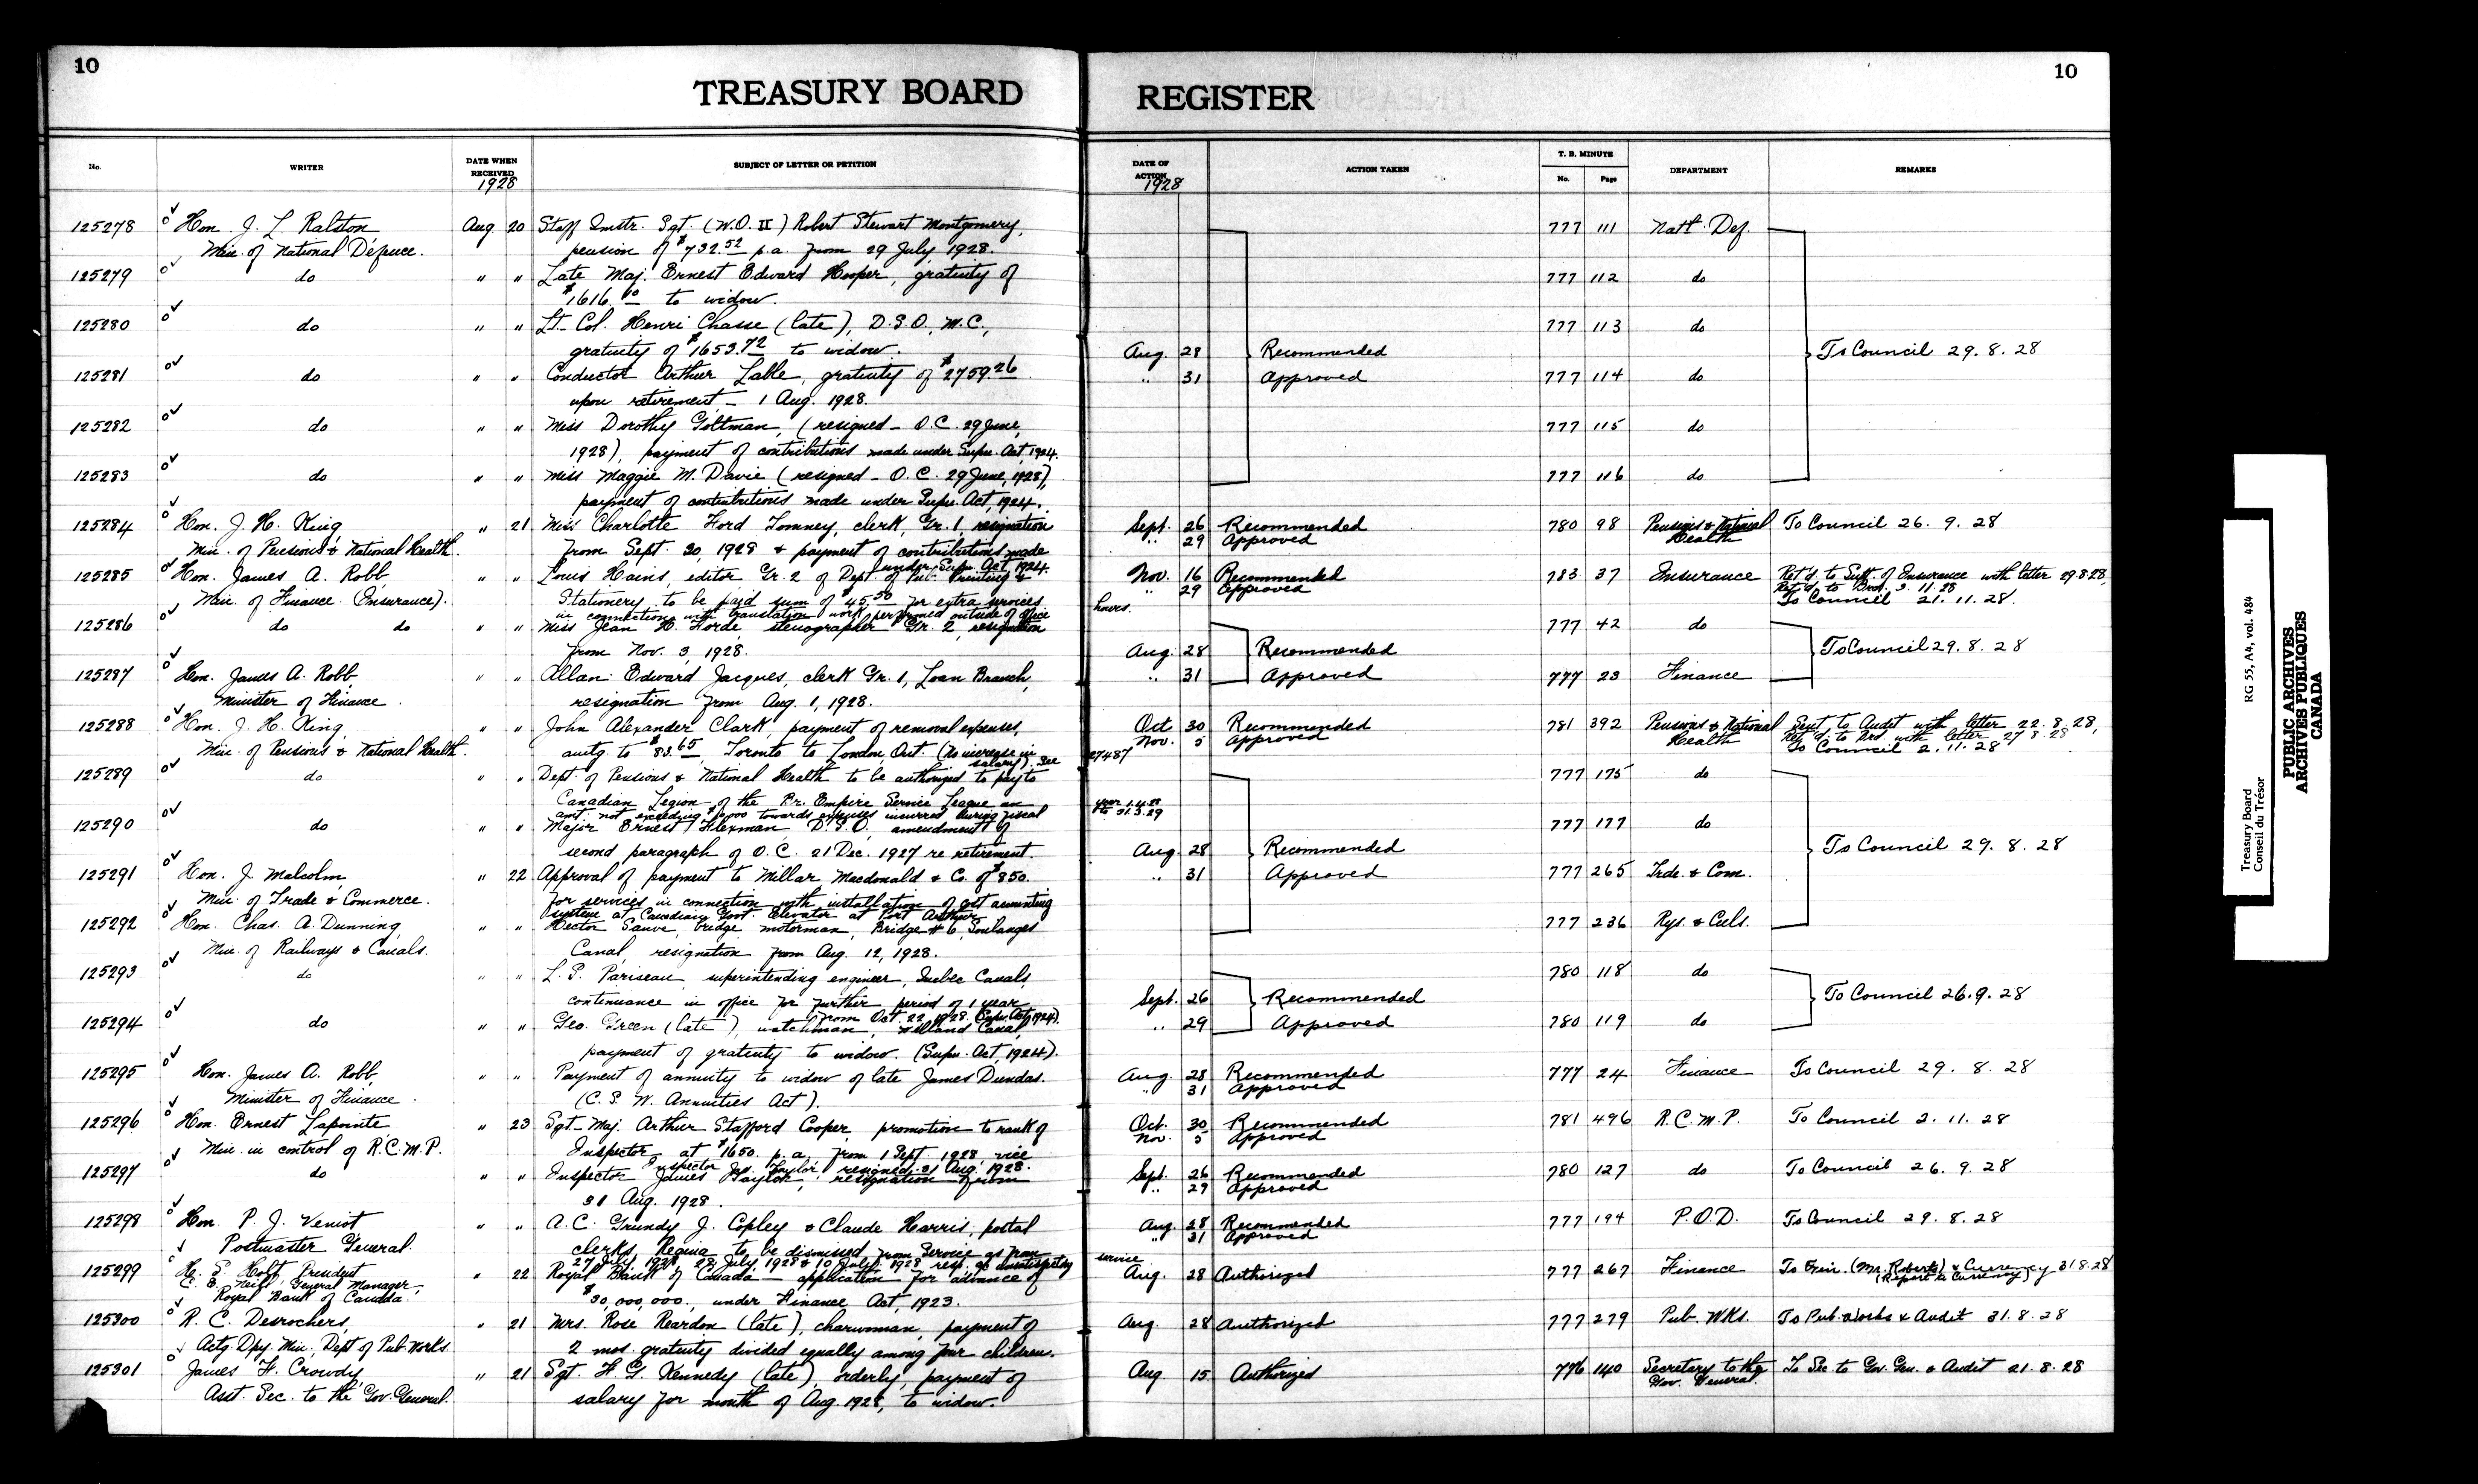 10
10
TREASURY BOARD REGISTER
No. WRITER DATE WHEN RECEIVED SUBJECT OF LETTER OR PETITION DATE OF ACTION ACTION TAKEN T. B. MINUTE No. Page DEPARTMENT REMARKS
1928 1928
125278 Hon. J. L. Ralston Aug 20 Staff Instr. Sgt. (W.O. II) Robert Stewart Montgomery, 777 111 Nat'l. Def.
Min. of National Defence. pension of $732.52 p.a. from 29 July 1928.
125279 do " " Late Maj. Ernest Edward Hooper, gratuity of 777 112 do
$1616.10 to widow.
125280 do " " Lt-Col. Henri Chasse (late), D.S.O., M.C., 777 113 do
gratuity of $1653.72 to widow. Aug. 28 Recommended To Council 29.8.28
125281 do " " Conductor Arthur Lable, gratuity of $2759.26 " 31 Approved 777 114 do
upon retirement - 1 Aug. 1928.
125282 do " " Miss Dorothy Goltman, (resigned - O.C. 29 June, 777 115 do
1928), payment of contributions made under Supn. Act, 1924.
125283 do " " Miss Maggie M. Davie (resigned - O.C. 29 June, 1928), 777 116 do
payment of contributions made under Supn. Act, 1924.
125284 Hon. J. H. King, " 21 Miss Charlotte Ford Tomney, clerk, Gr. 1, resignation Sept. 26 Recommended 780 98 Pensions & National Health To Council 26.9.28
Min. of Pensions & National Health. from Sept. 30, 1928 & payment of contributions made " 29 Approved
under Supn. Act, 1924.
125285 Hon. James A. Robb, " " Louis Hains, editor Gr. 2 of Dept. of Pub. Printing & Nov. 16 Recommended 783 37 Insurance Ret'd. to Supt. of Insurance with letter 29.8.28,
" 29 Approved Ret'd. to Brd. 3.11.28
Min. of Finance (Insurance). Stationery to be paid sum of $45.50 for extra services To Council 21.11.28.
in connection with translation work performed outside of office hours.
125286 do do " " Miss Jean H. Forde, stenographer Gr. 2, resignation 777 42 do
from Nov. 3, 1928. Aug. 28 Recommended To Council 29.8.28
125287 Hon. James A. Robb, " " Allan Edward Jacques, clerk Gr. 1, Loan Branch, " 31 Approved 777 23 Finance
Minister of Finance. resignation from Aug. 1, 1928.
125288 Hon. J. H. King, " " John Alexander Clark, payment of removal expenses, Oct 30 Recommended 781 392 Pensions & National Health Sent to Audit with letter 22.8.28,
Nov. 5 Approved Ret'd. to Brd. with letter 27.8.28
Min. of Pensions & National Health amtg. to $83.65, Toronto to London, Ont. (No increase in salary). See 27487 To Council 2.11.28
125289 do " " Dept. of Pensions & National Health to be authorized to pay to 777 175 do
Canadian Legion of the Br. Empire Service League an
amt. not exceeding $10,000 towards expenses incurred during fiscal year 1.4.28 to 31.3.29
125290 do " " Major Ernest Flexman, D.S.O., amendment of 777 177 do
second paragraph of O.C. 21 Dec. 1927 re retirement. Aug. 28 Recommended To Council 29.8.28
125291 Hon. J. Malcolm, " 22 Approval of payment to Millar Macdonald & Co. of $850. " 31 Approved 777 265 Trde. & Com.
Min. of Trade & Commerce. for services in connection with installation of cost accounting
system at Canadian Govt. Elevator at Port Arthur
125292 Hon. Chas. A. Dunning, " " Hector Sauve, bridge motorman, Bridge #6, Soulanges 777 236 Rys. & Cnls.
Min. of Railways & Canals. Canal, resignation from Aug. 12, 1928.
125293 do " " L. P. Pariseau, superintending engineer, Quebec Canals, 780 118 do
continuance in office for further period of 1 year Sept. 26 Recommended To Council 26.9.28
from Oct. 22, 1928. (Supn. Act, 1924).
125294 do " " Geo. Green (late), watchman, Welland Canal, " 29 Approved 780 119 do
payment of gratuity to widow. (Supn. Act, 1924).
125295 Hon. James A. Robb, " " Payment of annuity to widow of late James Dundas. Aug. 28 Recommended 777 24 Finance To Council 29.8.28
Minister of Finance. (C. S. W. Annuities Act). " 31 Approved
125296 Hon. Ernest Lapointe " 23 Sgt-Maj. Arthur Stafford Cooper, promotion to rank of Oct. 30 Recommended 781 496 R.C.M.P. To Council 2.11.28
Nov. 5 Approved
Min. in control of R.C.M.P. Inspector at $1650. p.a. from 1 Sept. 1928, vice
Inspector Jas. Taylor resigned 31 Aug. 1928.
125297 do " " Inspector James Taylor, resignation from Sept. 26 Recommended 780 127 do To Council 26.9.28
31 Aug. 1928. " 29 Approved
125298 Hon. P. J. Veniot " " A.C. Grundy, J. Copley & Claude Harris, postal Aug. 28 Recommended 777 194 P.O.D. To Council 29.8.28
" 31 Approved
Postmaster General. clerks, Regina to be dismissed from Service as from
27 July, 1928, 28 July 1928 & 10 July 1928 resp. as unsatisfactory service
125299 H. S. Holt, President " 22 Royal Bank of Canada - application for advance of Aug. 28 Authorized 777 267 Finance To Fin. (Mr. Roberts) & Currency 31.8.28
C. E. Neill, General Manager, (Report to Currency)
Royal Bank of Canada. $30,000,000., under Finance Act, 1923.
125300 R. C. Desrochers, " 21 Mrs. Rose Reardon (late), charwoman, payment of Aug. 28 Authorized 777 279 Pub. Wks. To Pub. Works & Audit 31.8.28
Actg. Dpy. Min., Dept of Pub. Works. 2 mos. gratuity divided equally among four children.
125301 James F. Crowdy " 21 Sgt. F. G. Kennedy (late), orderly, payment of Aug. 15 Authorized 776 140 Secretary to the Gov. General. To Sec. to Gov. Gen. & Audit 21.8.28
Asst. Sec. to the Gov. General. salary for month of Aug. 1928, to widow.
Treasury Board RG 55, A4, vol. 484
Conseil du Trésor
PUBLIC ARCHIVES
ARCHIVES PUBLIQUES
CANADA